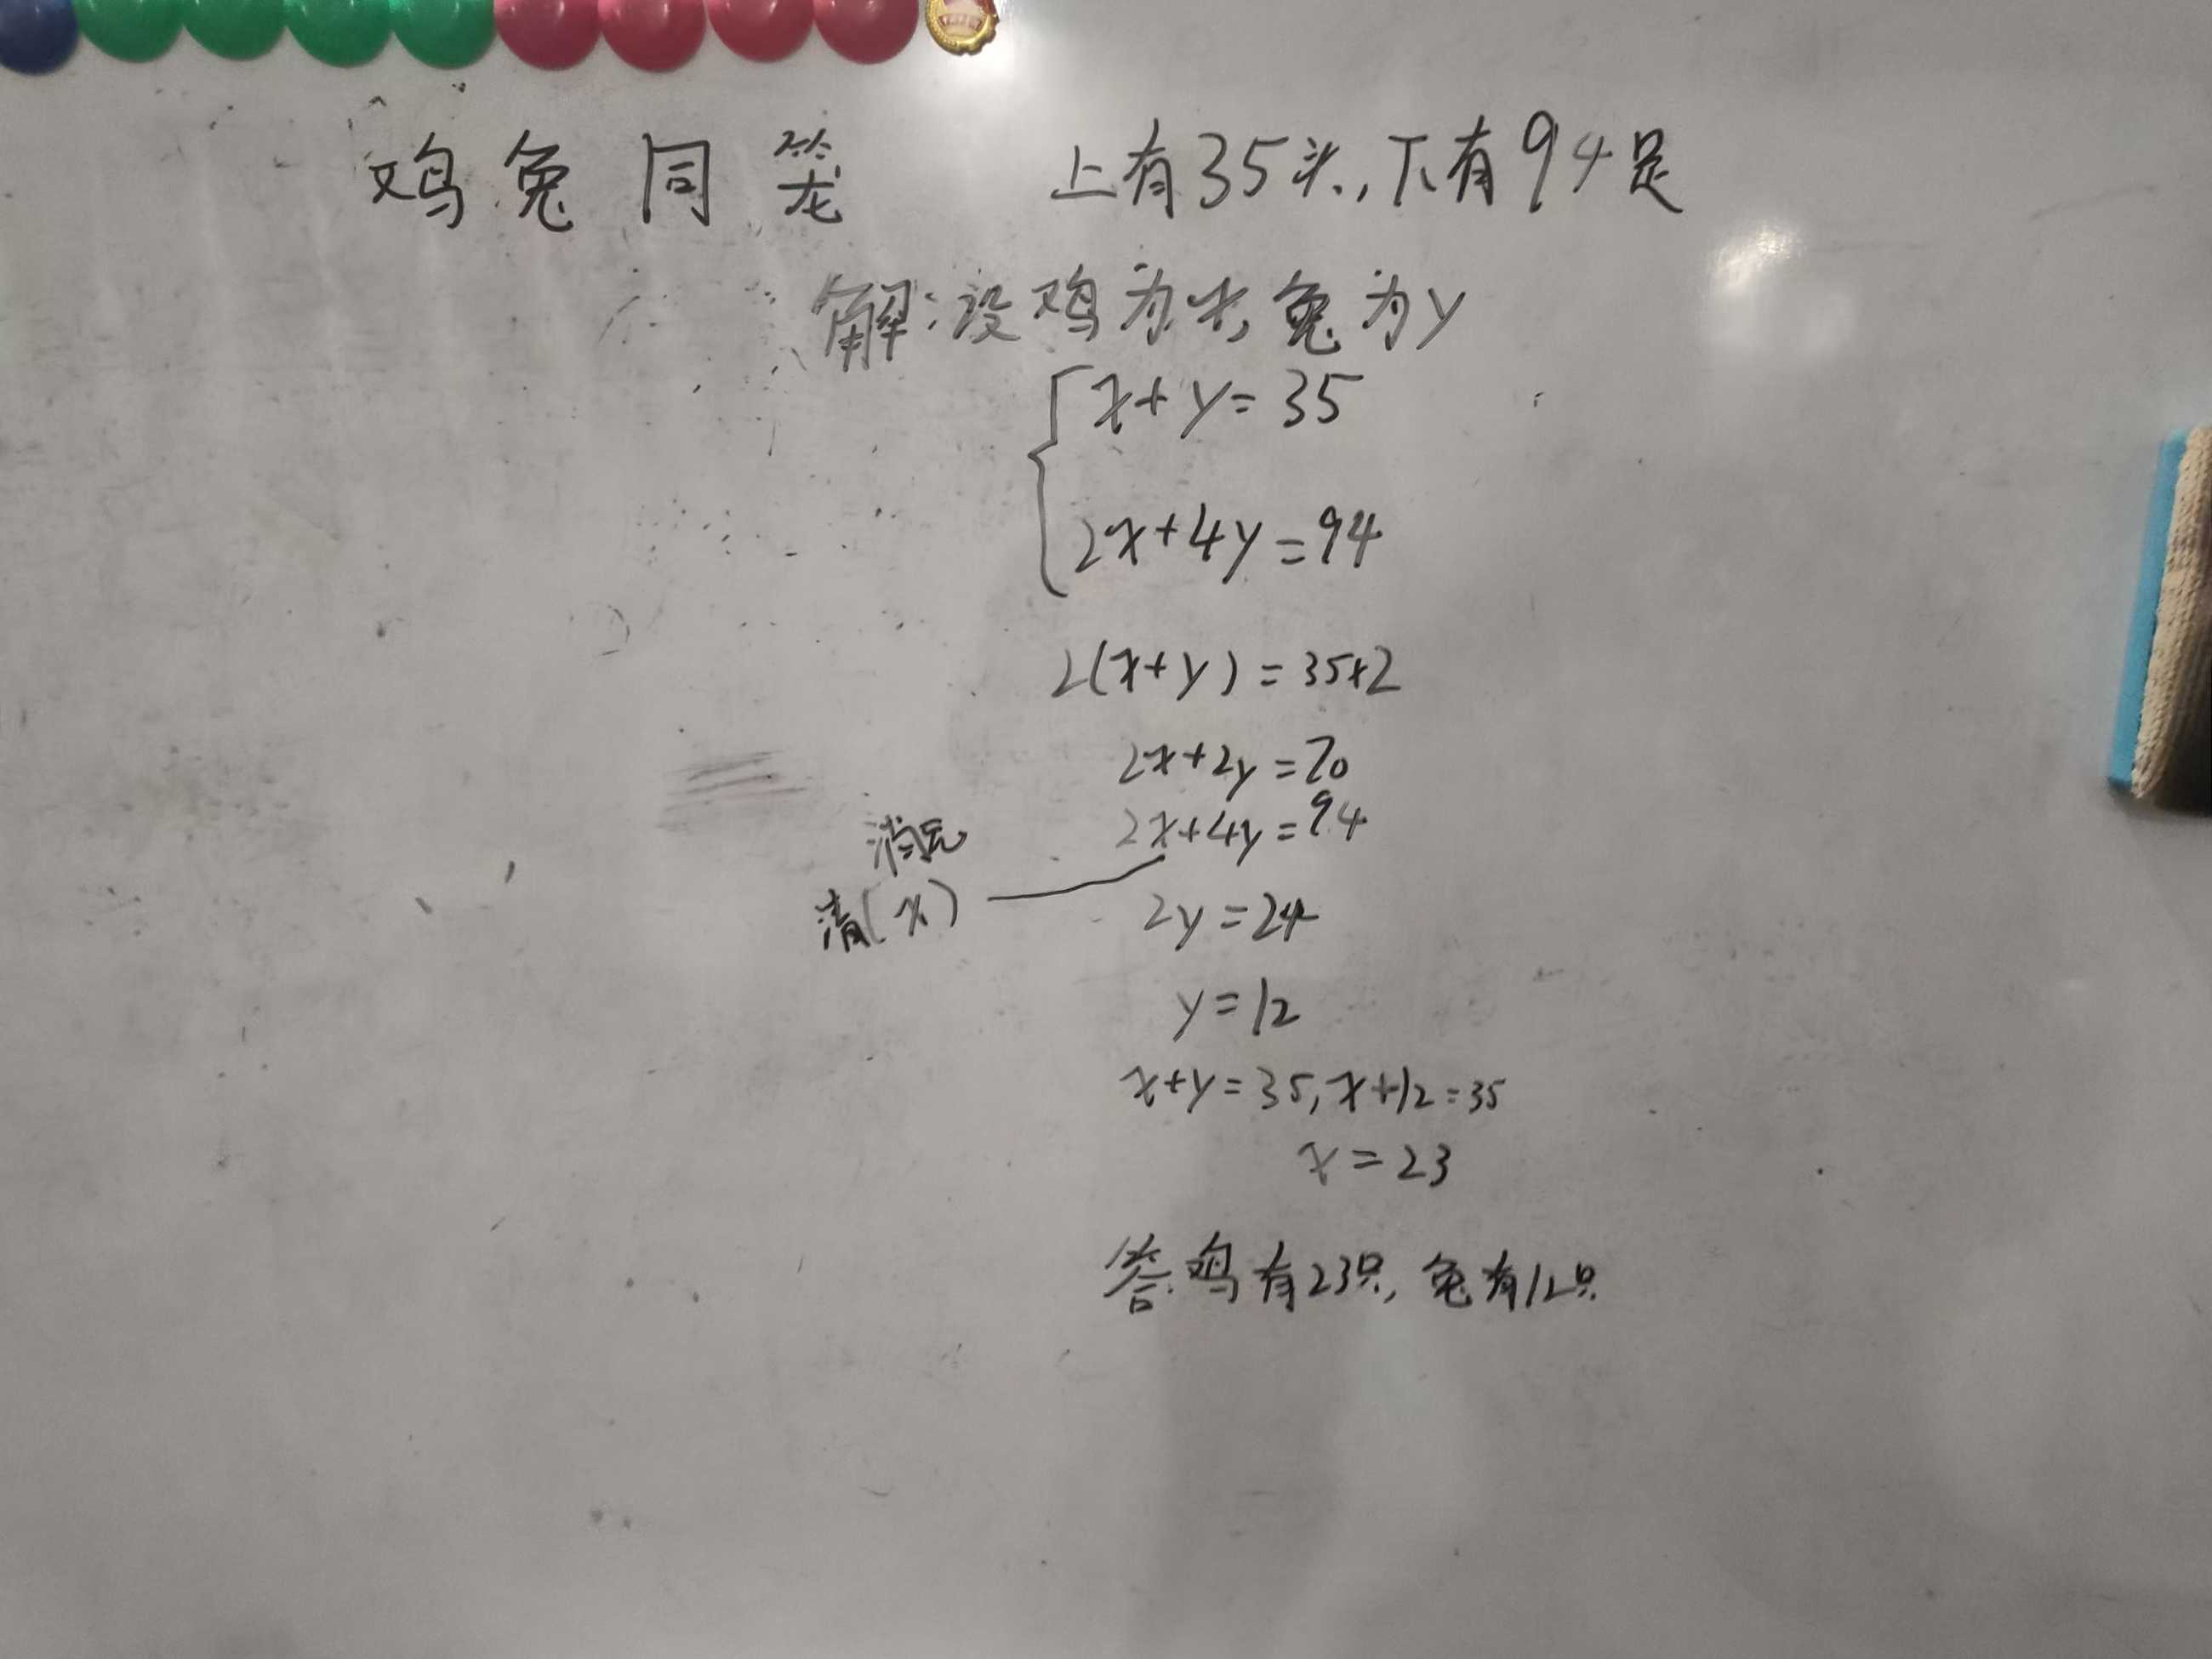 鸡兔同笼 上有35头,下有94足
解:设鸡为x,兔为y
x+y=35
2x+4y=94
2(x+y)=35×2
2x+2y=70
2x+4y=94
消元
清(x)
2y=24
y=12
x+y=35,x+12=35
x=23
答:鸡有23只,兔有12只